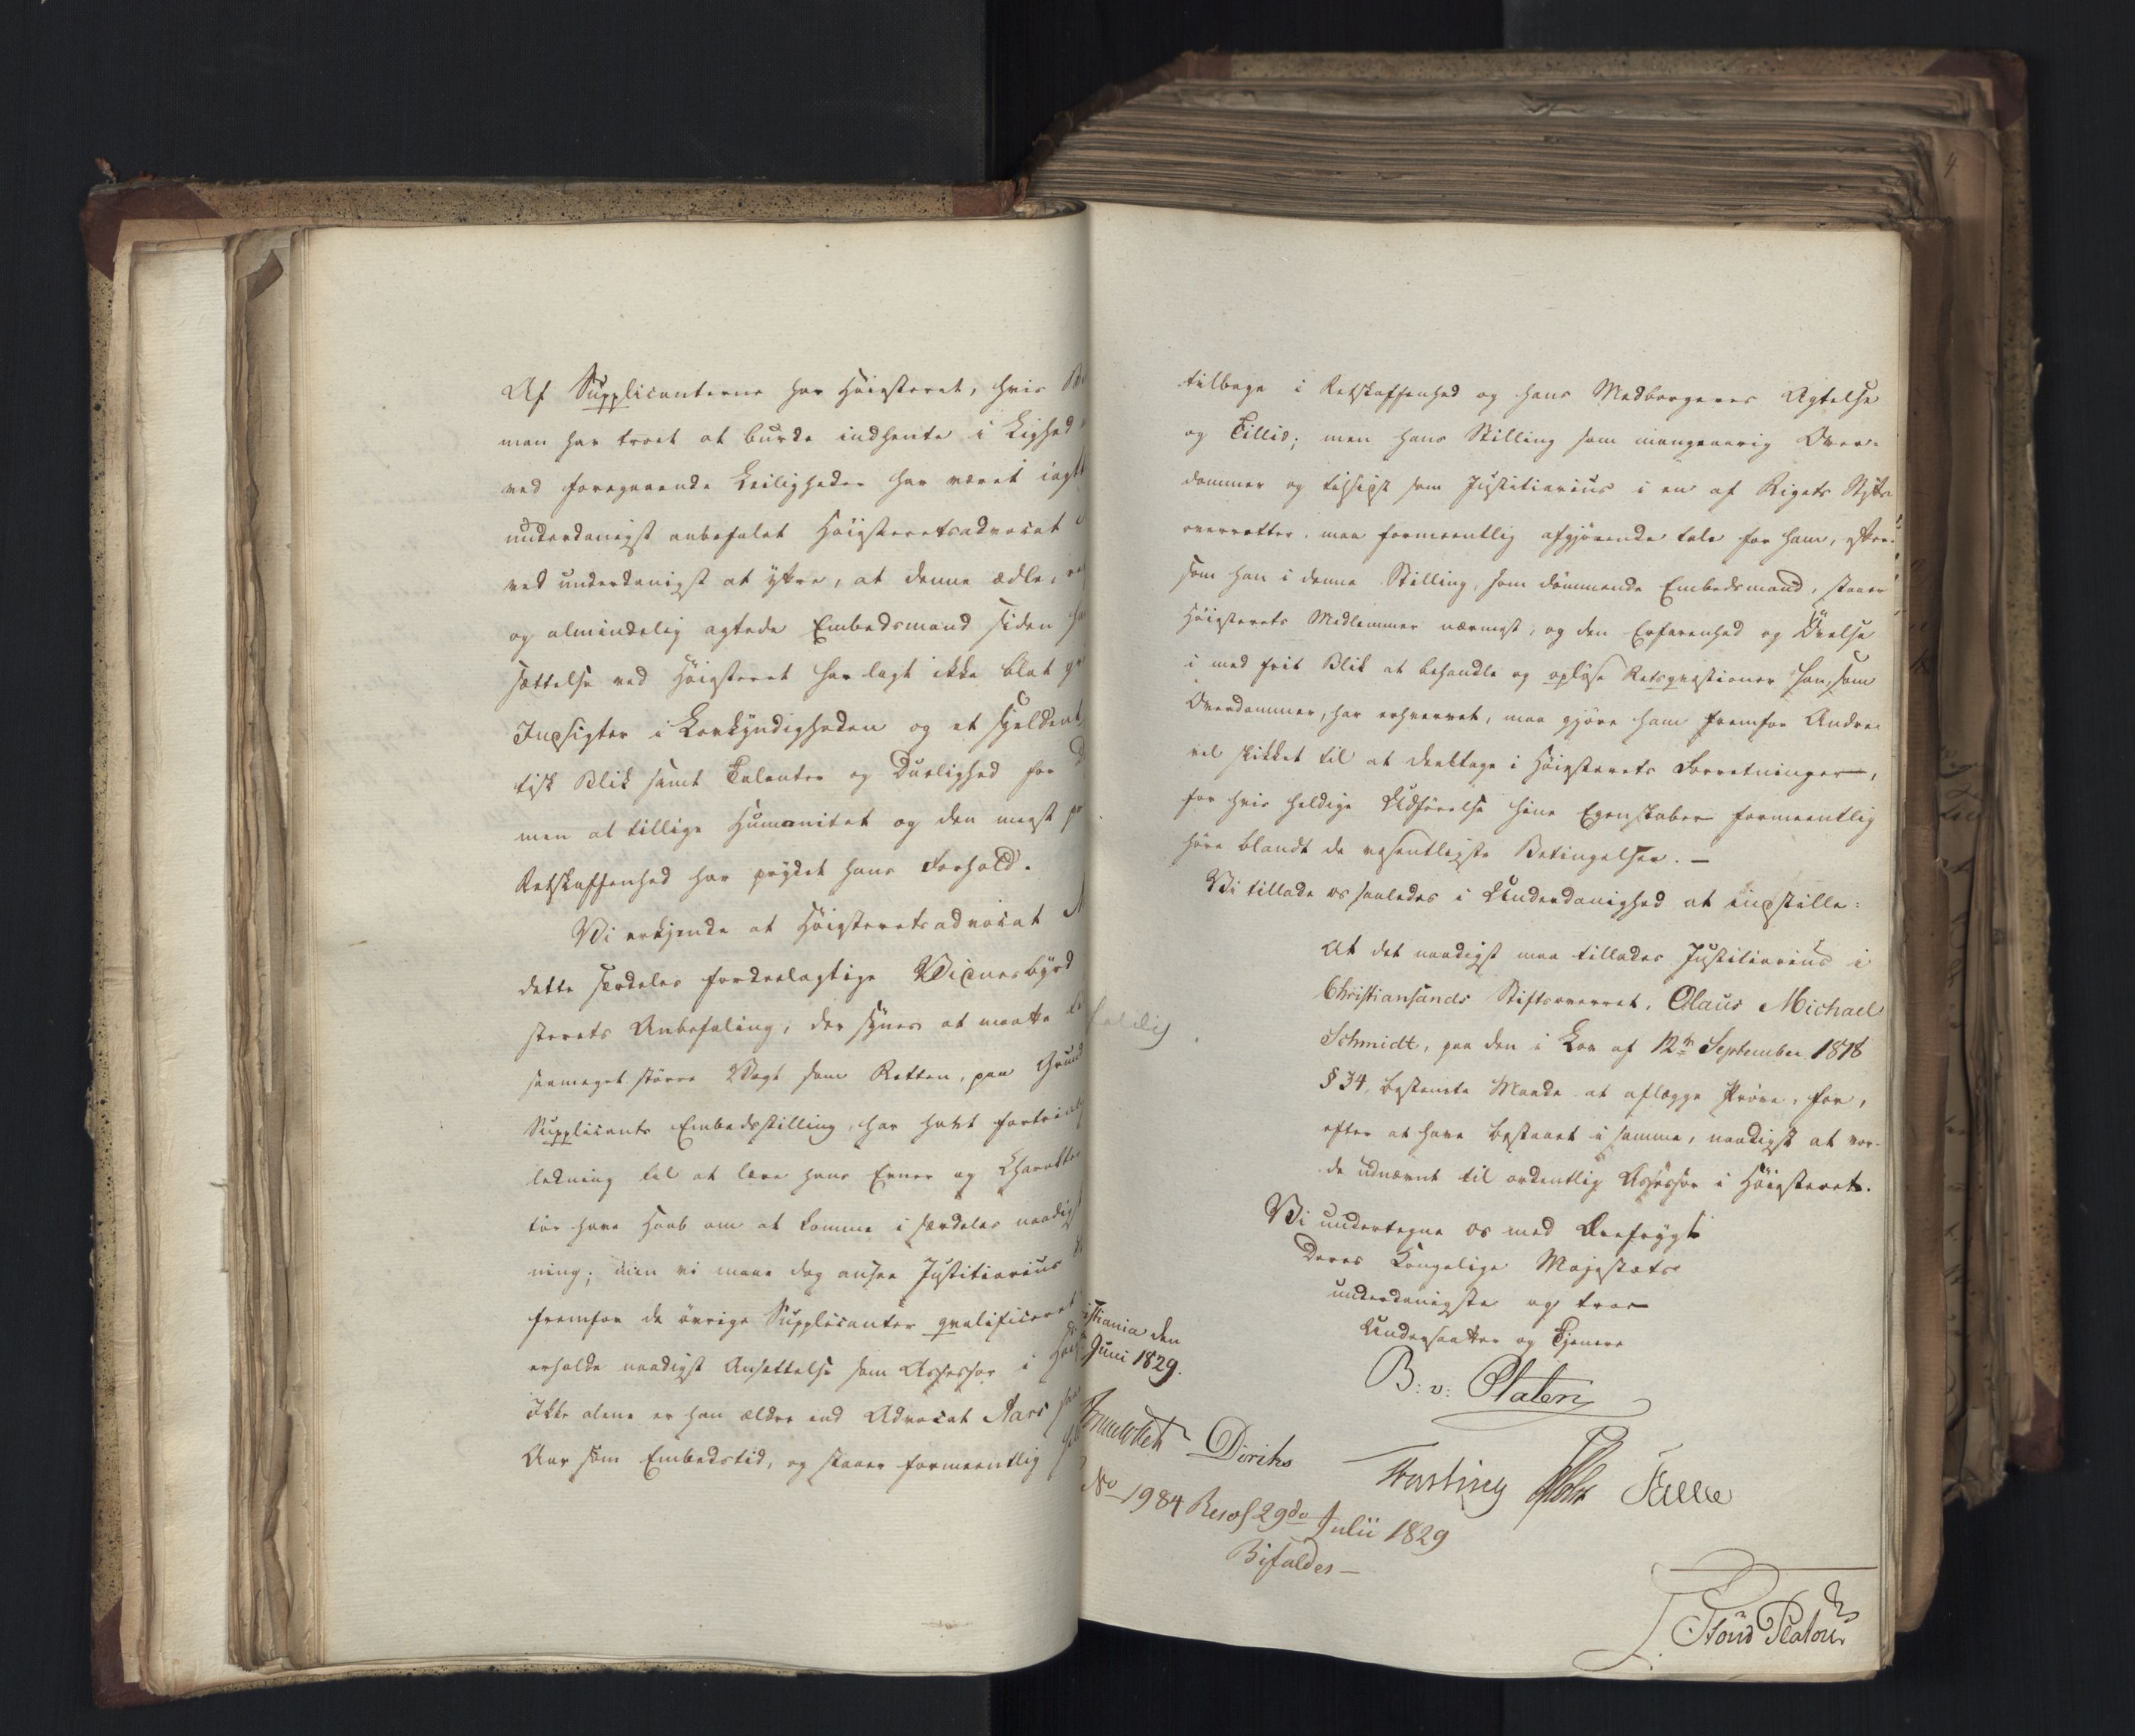 Af Supplicanterne har Høiesteret, hvis
man har troet at burde indhente i Lighed
ved foregaaende Leiligheder har været iagtt
underdanigst anbefalet Høiesteretsadvocat
ved underdanigst at yttre, at denne ædle,
og almindelig agtede Embedsmand siden
sættelse ved Høiesteret har lagt ikke blot
Indsigter i Lovkyndigheden og et sjeldent
tisk Blik samt Talenter og Duelighed for
men at tillige Humanitet og den meest
Retskaffenhed har prydet hans Forhold.
Vi erkjende at Høiesteretsadvocat
dette særdeles fordeelagtige Vidnesbyrd
sterets Anbefaling, der synes at maatte
saameget større Vægt som Retten, paa Grund
Supplicants Embedsstilling, har havt fortrinlig
ledning til at lære hans Evner og Charakteer
tør have Haab om at komme i særdeles naadigst
ning; men vi maae dog ansee Justitiarius
fremfor de øvrige Supplicanter qvalificeret
erholde naadigst Ansættelse som Assessor i Høie
Ikke alene er han ældre end Advocat Aars
Aar som Embedstid, og staaer formeentlig
tilbage i Retskaffenhed og hans Medborgeres Agtelse
og Tillid; men hans Stilling som mangeaarig Over-
dommer og tilsidst som Justitiarius i en af Rigets Stifts
overretter, maa formeentlig afgjørende tale for ham, efter-
som han i denne Stilling, som dømmende Embedsmand, staaer
Høiesterets Medlemmer nærmest, og den Erfarenhed og Øvelse
i med frit Blik at behandle og opløse Retsqvæstioner han, som
Overdommer, har erhvervet, maa gjøre ham fremfor Andre
vel skikket til at deeltage i Høiesterets Forretninger,
for hvis heldige Udførelse hine Egenskaber formeentlig
høre blandt de væsentligste Betingelser. —
Vi tillade os saaledes i Underdanighed at indstille:
At det naadigst maa tillades Justitiarius i
Christiansands Stiftsoverret, Olaus Michael
Schmidt, paa den i Lov af 12te September 1818
§ 34, bestemte Maade at aflægge Prøve, for,
efter at have bestaaet i samme, naadigst at vor-
de udnævnt til ordentlig Assessor i Høiesteret.
Vi undertegne os med Ærefrygt
Deres Kongelige Majestæts
underdanigste og troe
Undersaatter og Tjenere
istiania den
Juni 1829.
B: v: Platen
Diriks
Fasting Holst Falbe
No 1984 Resol 29de Julii 1829
Bifaldes —